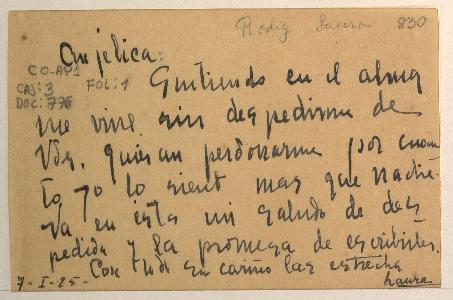 Rodig Laura 830
Anjelica:
CO-AP1
CAJ: 3 FOL: 1
DOC: 776
Sintiendo en el alma
me vine sin despedirme de
Vds, quieran perdonarme por cuan
to yo lo siento mas que nadie.
Va en esta mi saludo de des
pedida y la promesa de escribirles.
Con todo su cariño las estrecha
7-I-25- Laura